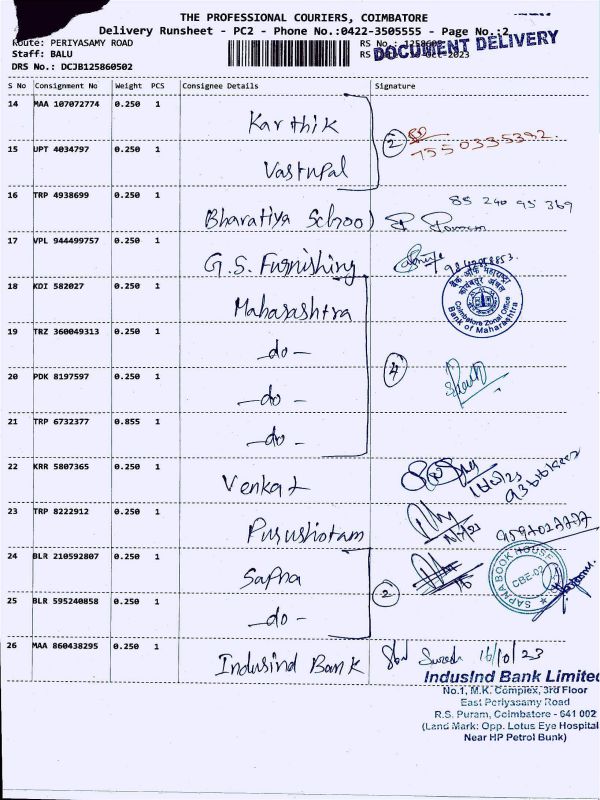 THE PROFESSIONAL COURIERS, COIMBATORE
Delivery Runsheet - PC2 - Phone No.:0422-3505555 - Page No.:2
Route: PERIYASAMY ROAD
Staff: BALU
DRS No.: DCJB125860502
DOCUMENT DELIVERY
S No Consignment No Weight PCS Consignee Details Signature
14 MAA 107072774 0.250 1 Karthik
2 7550335392.
15 UPT 4034797 0.250 1 Vastupal
16 TRP 4938699 0.250 1 Bharatiya School
85 240 95 369
17 VPL 944499757 0.250 1 G.S. Furnishing
18 KDI 582027 0.250 1 Maharashtra
बैंक ऑफ महाराष्ट्र
Coimbatore Zonal Office
Bank of Maharashtra
19 TRZ 360049313 0.250 1 -do-
20 PDK 8197597 0.250 1 -do-
4
21 TRP 6732377 0.855 1 -do-
22 KRR 5807365 0.250 1 Venkat
23 TRP 8222912 0.250 1 Purushotam
9597027777
24 BLR 210592807 0.250 1 Sapna
SAPNA BOOK HOUSE
CBE-02
2
25 BLR 595240858 0.250 1 -do-
26 MAA 860438295 0.250 1 Indusind Bank
Suresh 16/10/23
IndusInd Bank Limited
No.1, M.K. Complex, 3rd Floor
East Periyasamy Road
R.S. Puram, Coimbatore - 641 002
(Land Mark: Opp. Lotus Eye Hospital
Near HP Petrol Bunk)